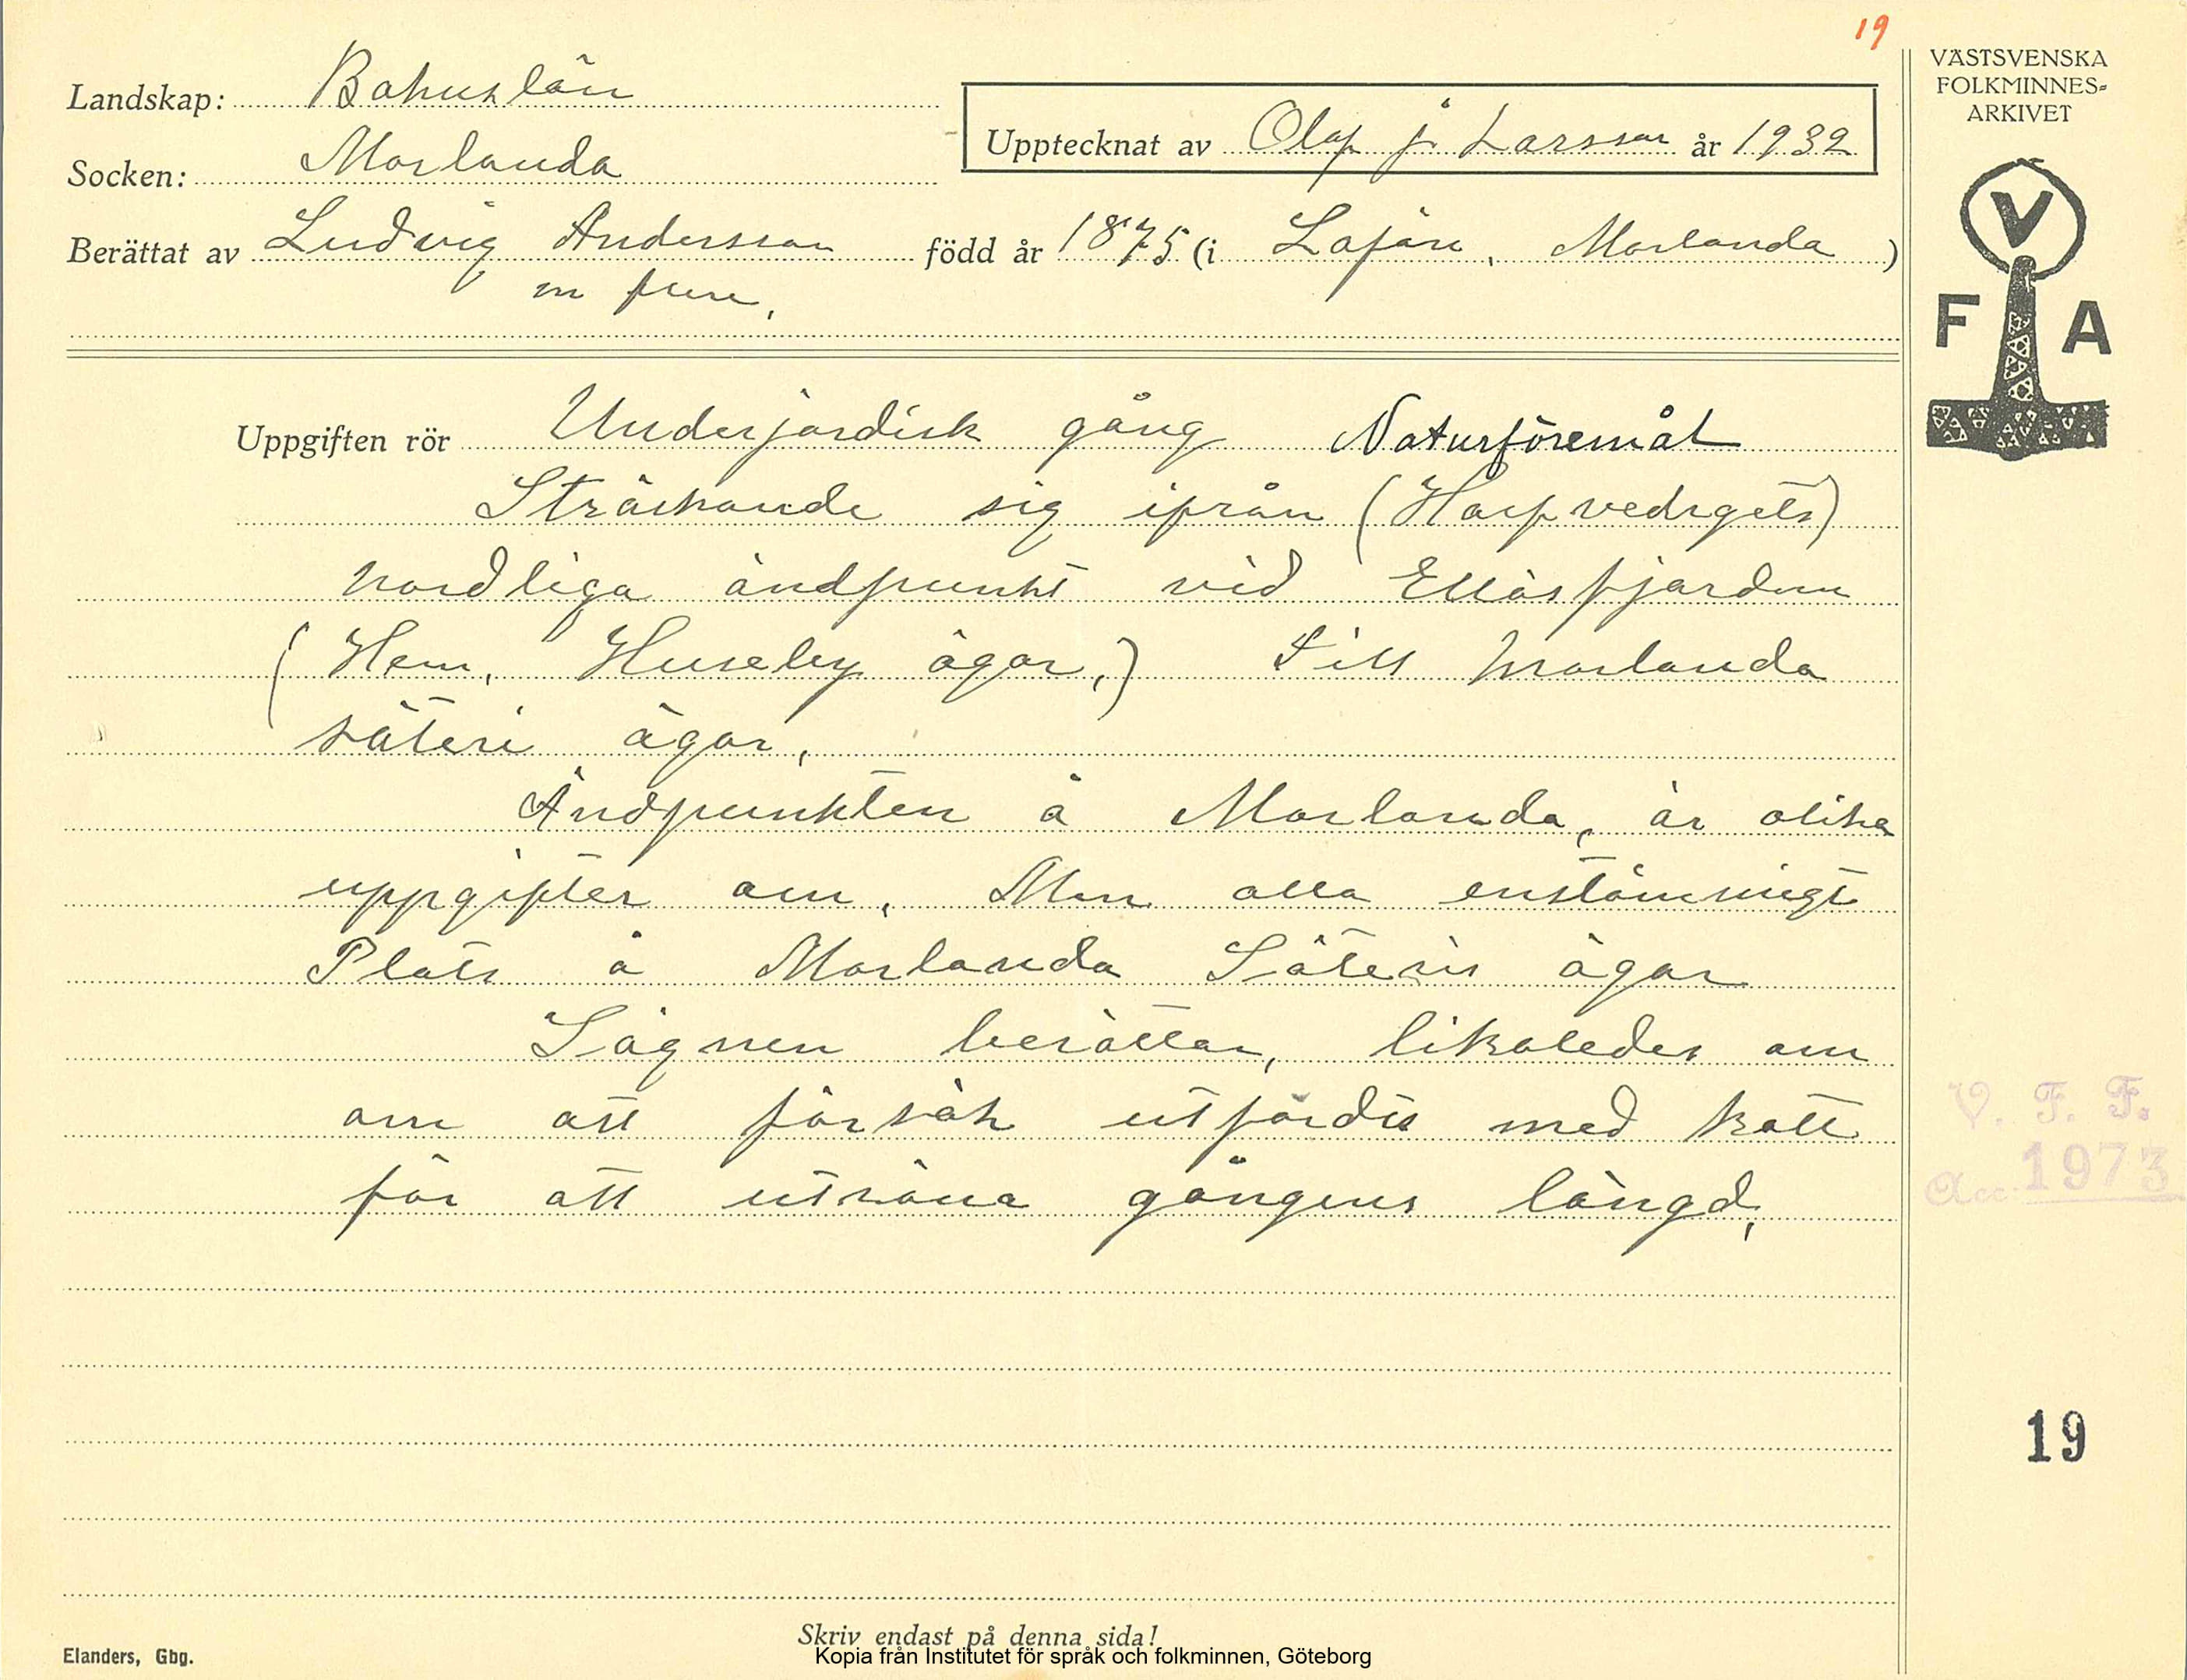 19
VÄSTSVENSKA
FOLKMINNES=
ARKIVET
Landskap: Bohuslän
Upptecknat av Olof J. Larsson år 1932
Socken: Morlanda
Berättat av Ludvig Andersson född år 1875 (i Morlanda)
m flere,
V
F A
Uppgiften rör Underjordisk gång Naturföremål
Sträckande sig ifrån
nordliga ändpunkt vid Ellösfjorden
(Hem, Huseby ägor,) till Morlanda
säteri ägor,
Ändpunkten å Morlanda, är olika
uppgifter om, Men alla enstämmigt
Plats å Morlanda Säteris ägor
Sägnen berättar, likaledes om
om att försök utfördts med katt
för att utröna gångens längd,
V. F. F.
Acc. 1973
19
Skriv endast på denna sida!
Kopia från Institutet för språk och folkminnen, Göteborg
Elanders, Gbg.